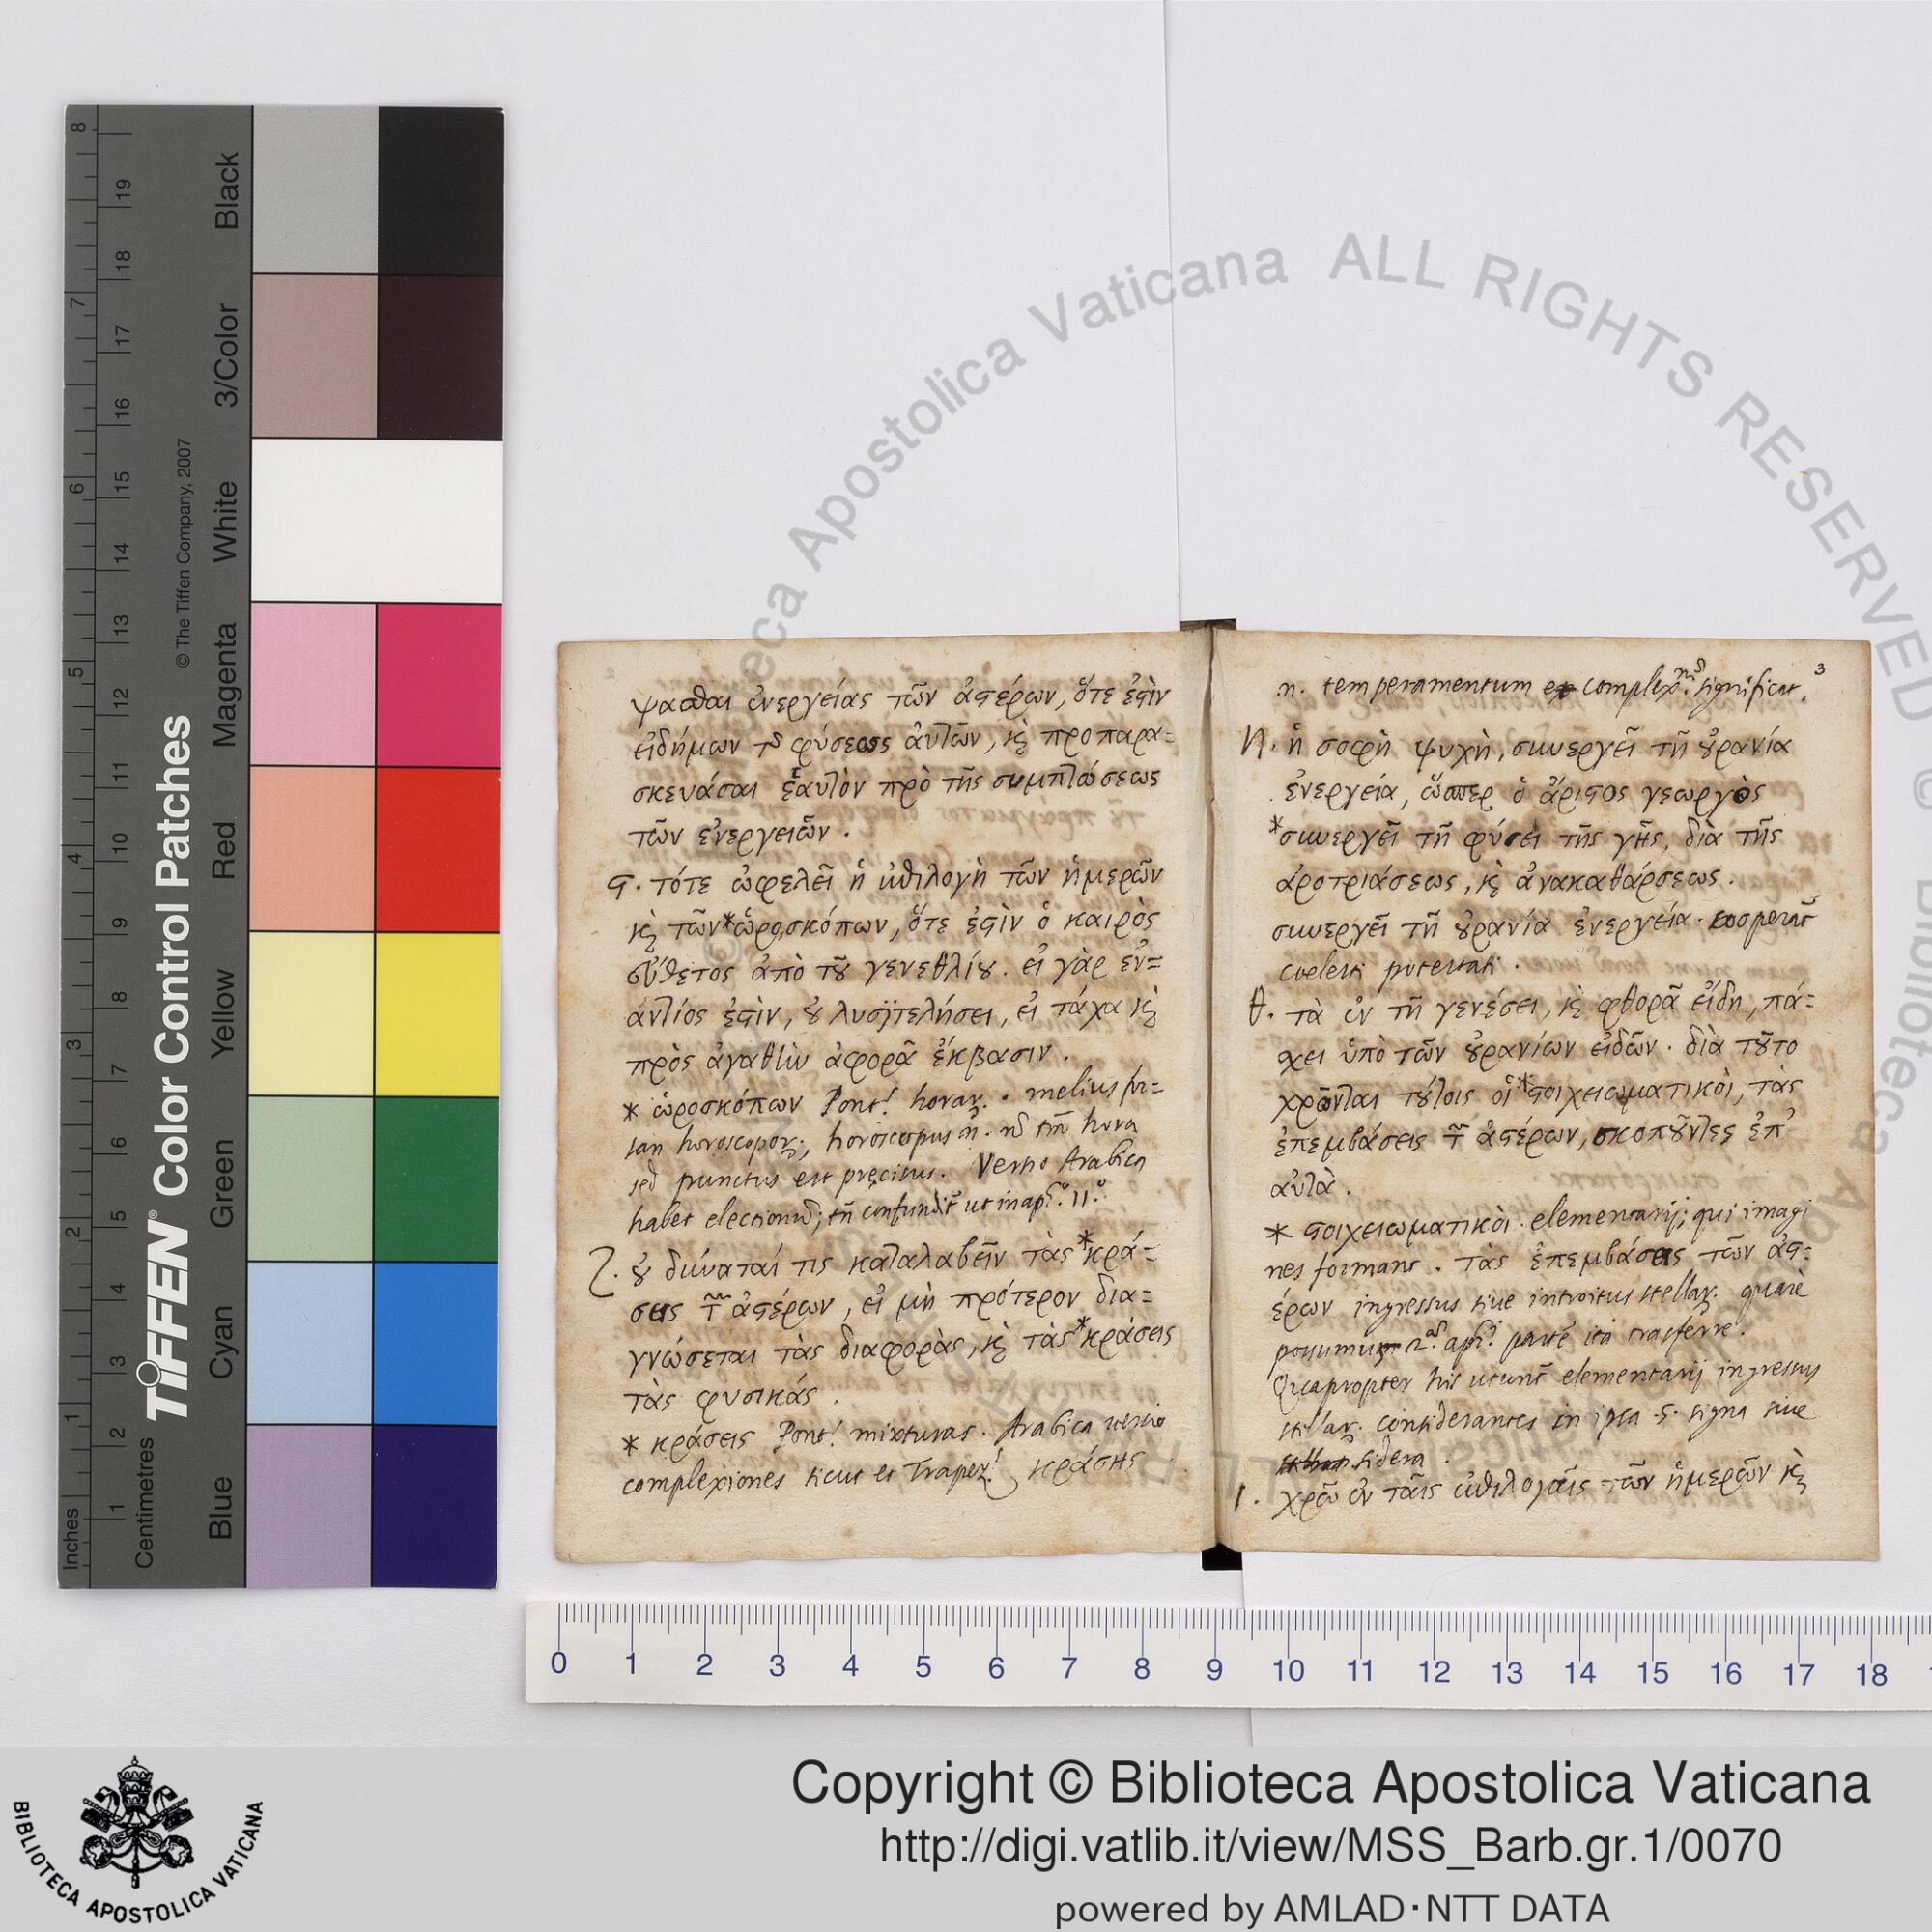 ψασθαι ἐνεργείας τῶν ἀστέρων, ὅτε ἐστὶν
εἰδήμων τῆς φύσεως αὐτῶν, καὶ προπαρα=
σκευάσαι ἑαυτὸν πρὸ τῆς συμπτώσεως
τῶν ἐνεργειῶν .
ϛ. τότε ὠφελεῖ ἡ ἐπιλογὴ τῶν ἡμερῶν
καὶ τῶν *ὡροσκόπων, ὅτε ἐστὶν ὁ καιρὸς
εὔθετος ἀπὸ τοῦ γενεθλίου. εἰ γὰρ ἐν=
άντιός ἐστιν, οὐ λυσιτελήσει, εἰ τάχα καὶ
πρὸς ἀγαθὴν ἀφορᾶ ἔκβασιν .
* ὡροσκόπων Pont. horar. . melius
horoscopor. horoscopus hora
sed punctus est precisus. Versio Arabica
habet electionum; confundit ut in
ζ. οὐ δύναταί τις καταλαβεῖν τὰς *κρά=
σεις τῶν ἀστέρων, εἰ μὴ πρότερον δια=
γνώσεται τὰς διαφορὰς, καὶ τὰς *κράσεις
τὰς φυσικάς .
* κράσεις Pont. mixturas . Arabica versio
complexiones sicut et Trapez. κράσις
3
n. temperamentum et complex. significat.
η. ἡ σοφὴ ψυχὴ, συνεργεῖ τῇ οὐρανία
ἐνεργεία, ὥσπερ ὁ ἄριστος γεωργὸς
*συνεργεῖ τῇ φύσει τῆς γῆς, διὰ τῆς
ἀροτριάσεως, καὶ ἀνακαθάρσεως .
συνεργεῖ τῇ οὐρανία ἐνεργεία . cooperatur
coelesti potestati .
θ. τὰ ἐν τῇ γενέσει, καὶ φθορᾶ εἴδη, πά=
χει ὑπὸ τῶν οὐρανίων εἰδῶν . διὰ τοῦτο
χρῶνται τούτοις οἱ *στοιχειωματικοὶ, τὰς
ἐπεμβάσεις τῶν ἀστέρων, σκοποῦντες ἐπ'
αὐτὰ .
* στοιχειωματικοὶ . elementarij; qui imagi
nes formant . τὰς ἐπεμβάσεις τῶν ἀστ=
έρων ingressus siue introitus stellar. quare
possumus partem ita trasferre .
Quapropter his utuntur elementarij ingressus
stellar. considerantes in ipsa .s. signa siue
sidera .
ι. χρῶ ἐν ταῖς ἐπιλογαῖς τῶν ἡμερῶν καὶ
8
7
6
5
4
3
2
1
Inches
19
18
17
16
15
14
13
12
11
10
9
8
7
6
5
4
3
2
1
Centimetres
TIFFEN® Color Control Patches
© The Tiffen Company, 2007
Black
3/Color
White
Magenta
Red
Yellow
Green
Cyan
Blue
0 1 2 3 4 5 6 7 8 9 10 11 12 13 14 15 16 17 18
Biblioteca Apostolica Vaticana ALL RIGHTS RESERVED ©
BIBLIOTECA APOSTOLICA VATICANA
Copyright © Biblioteca Apostolica Vaticana
http://digi.vatlib.it/view/MSS_Barb.gr.1/0070
powered by AMLAD·NTT DATA